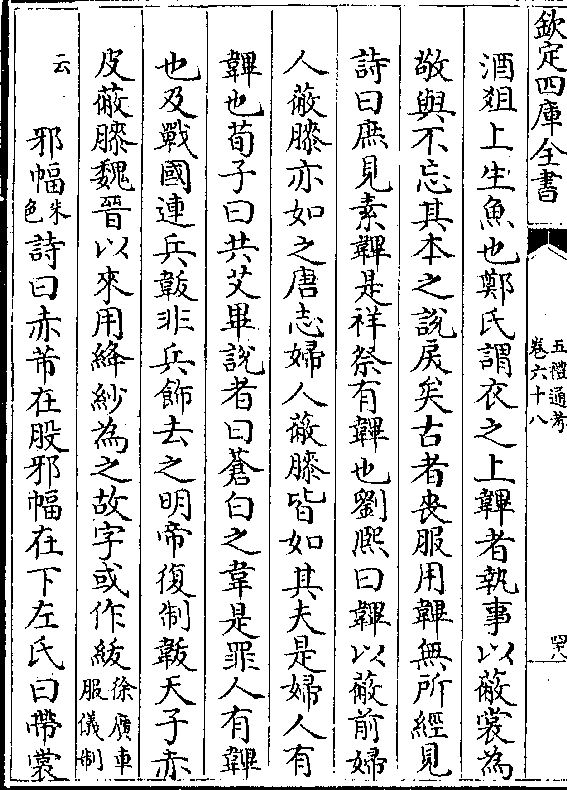 欽定四庫全書
五禮通考
卷六十八
四八
酒俎上生魚也鄭氏謂衣之上韠者執事以蔽裳為
敬與不忘其本之說戾矣古者喪服用韠無所經見
詩曰庶見素韠是祥祭有韠也劉熙曰韠以蔽前婦
人蔽膝亦如之唐志婦人蔽膝皆如其夫是婦人有
韠也荀子曰共艾畢說者曰蒼白之韋是罪人有韠
也及戰國連兵韍非兵飾去之明帝復制韍天子赤
皮蔽膝魏晉以來用絳紗為之故字或作紱徐廣車服儀制
云　邪幅朱色詩曰赤芾在股邪幅在下左氏曰帶裳